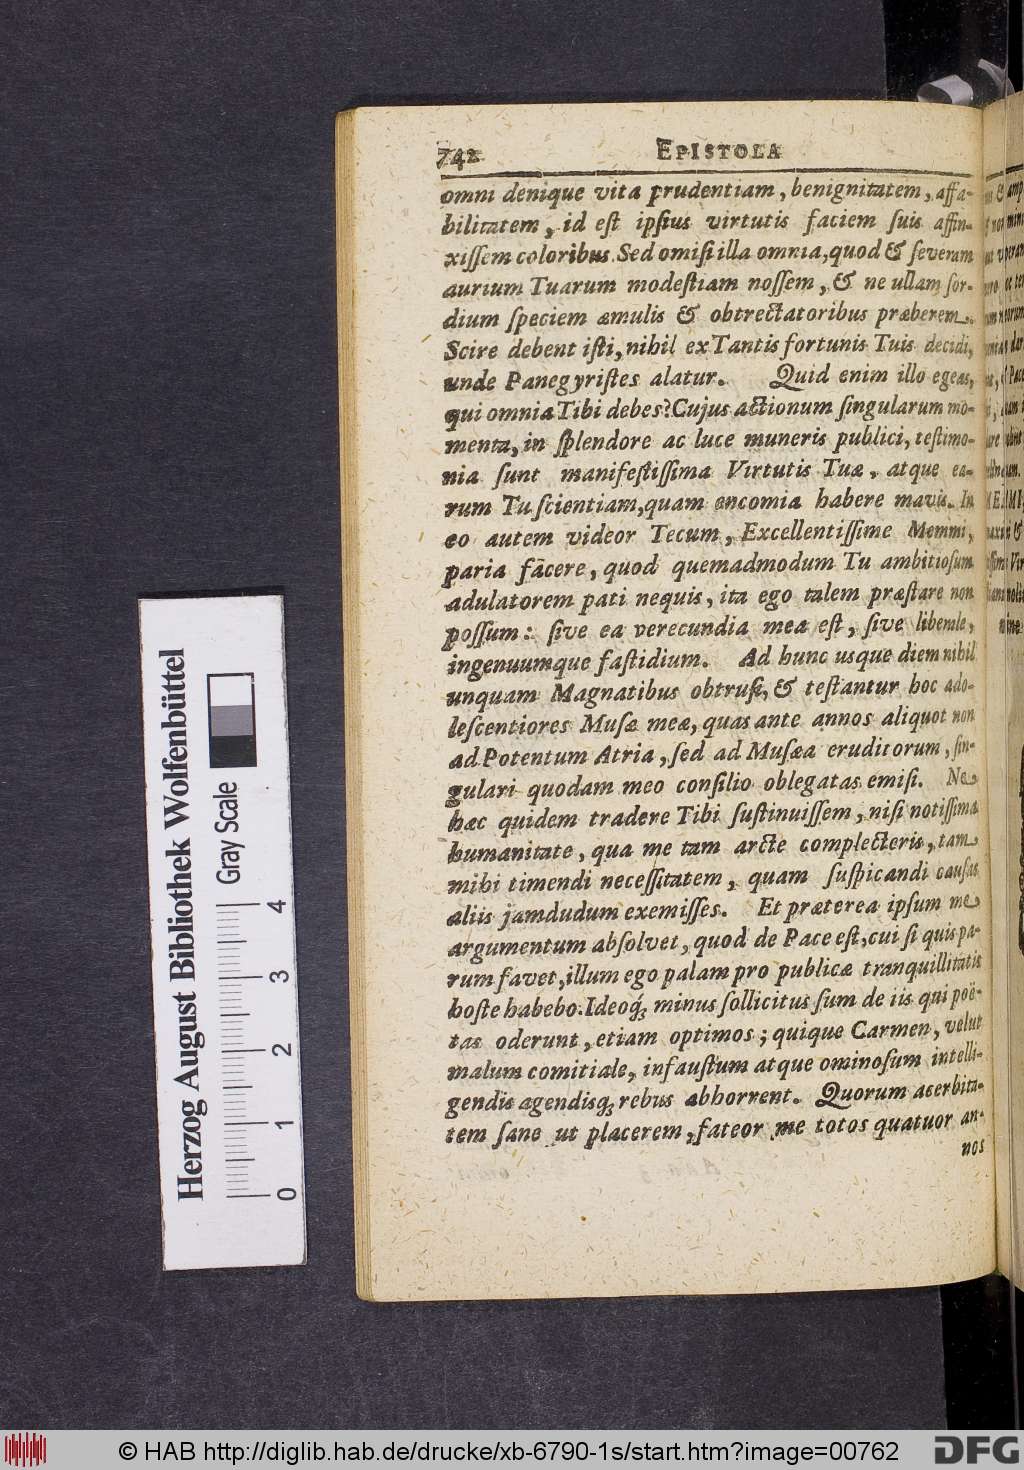 742 EPISTOLA
omni denique vita prudentiam, benignitatem, affa-
bilitatem, id est ipsius virtutis faciem suis affin-
xissem coloribus. Sed omisi illa omnia, quod & severam
aurium Tuarum modestiam nossem, & ne ullam sor-
dium speciem æmulis & obtrectatoribus præberem.
Scire debent isti, nihil ex Tantis fortunis Tuis decidi,
unde Panegyristes alatur. Quid enim illo egeas,
qui omnia Tibi debes? Cujus actionum singularum mo-
menta, in splendore ac luce muneris publici, testimo-
nia sunt manifestissima Virtutis Tuæ, atque ea-
rum Tu scientiam, quam encomia habere mavis. In
eo autem videor Tecum, Excellentissime Memmi,
paria facere, quod quemadmodum Tu ambitiosum
adulatorem pati nequis, ita ego talem præstare non
possum: sive ea verecundia mea est, sive liberale,
ingenuumque fastidium. Ad hunc usque diem nihil
unquam Magnatibus obtrusi, & testantur hoc ado-
lescentiores Musæ meæ, quas ante annos aliquot non
ad Potentum Atria, sed ad Musæa eruditorum, sin-
gulari quodam meo consilio oblegatas emisi. Ne
hæc quidem tradere Tibi sustinuissem, nisi notissima
humanitate, qua me tam arcte complecteris, tam
mihi timendi necessitatem, quam suspicandi causas
aliis jamdudum exemisses. Et præterea ipsum me
argumentum absolvet, quod de Pace est, cui si quis pa-
rum favet, illum ego palam pro publicæ tranquillitatis
hoste habebo. Ideoq; minus sollicitus sum de iis qui poë-
tas oderunt, etiam optimos; quique Carmen, velut
malum comitiale, infaustum atque ominosum intelli-
gendis agendisq; rebus abhorrent. Quorum acerbita-
tem sane ut placerem, fateor me totos quatuor an-
nos
Herzog August Bibliothek Wolfenbüttel
Gray Scale
0 1 2 3 4
© HAB http://diglib.hab.de/drucke/xb-6790-1s/start.htm?image=00762
DFG